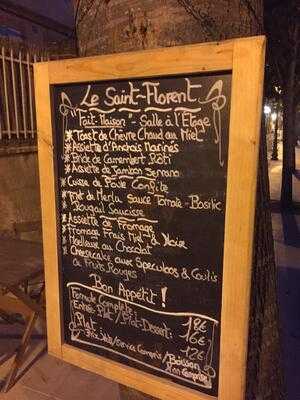 Le Saint-Florent
"Fait-Maison" - Salle à l'Etage
* Toast de Chèvre Chaud au Miel
* Assiette d'Anchois Marinés
* Bride de Camembert Rôti
* Assiette de Jambon Serrano
* Cuisse de Poule Confite
* Filet de Merlu sauce Tomate-Basilic
* Rougail Saucisse
* Assiette de Fromage
* Fromage Frais Miel & Noix
* Moelleux au Chocolat
* Cheesecake aux Speculoos & Coulis
de Fruits Rouges
Bon Appétit !
Formule Complète: 18€
Entrée-Plat / Plat-Dessert: 16€
Plat 12€
Prix Nets / Service Compris / Boisson
Non Comprise